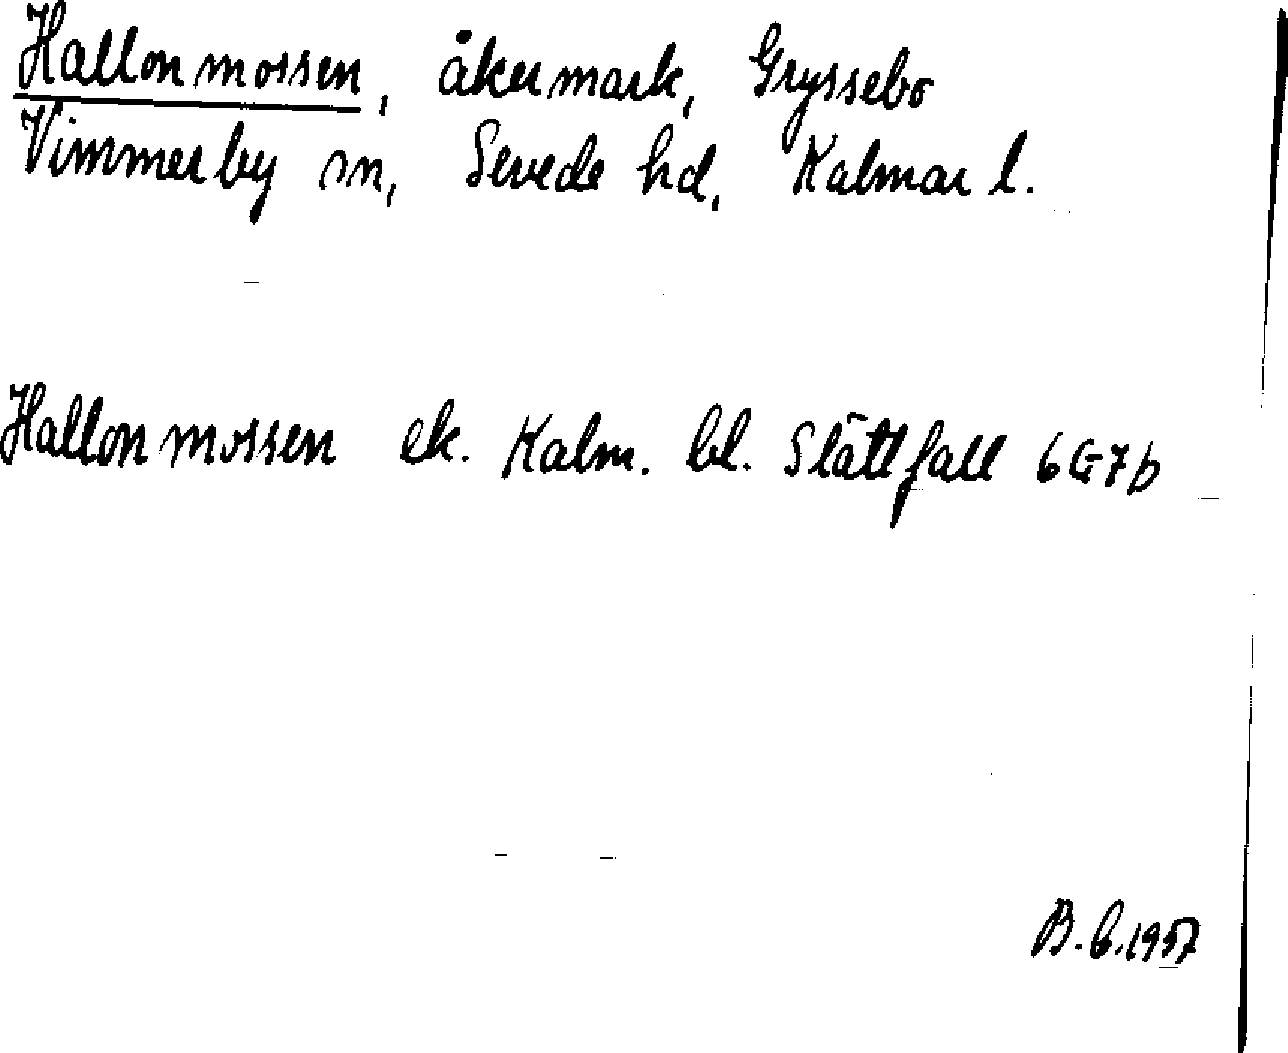 Hallonmossen, åkermark, Gryssebo
Vimmerby sn, Sevede hd, Kalmar l.
Hallonmossen ek. Kalm. bl. Slättfall 6G7b
B.b.1957